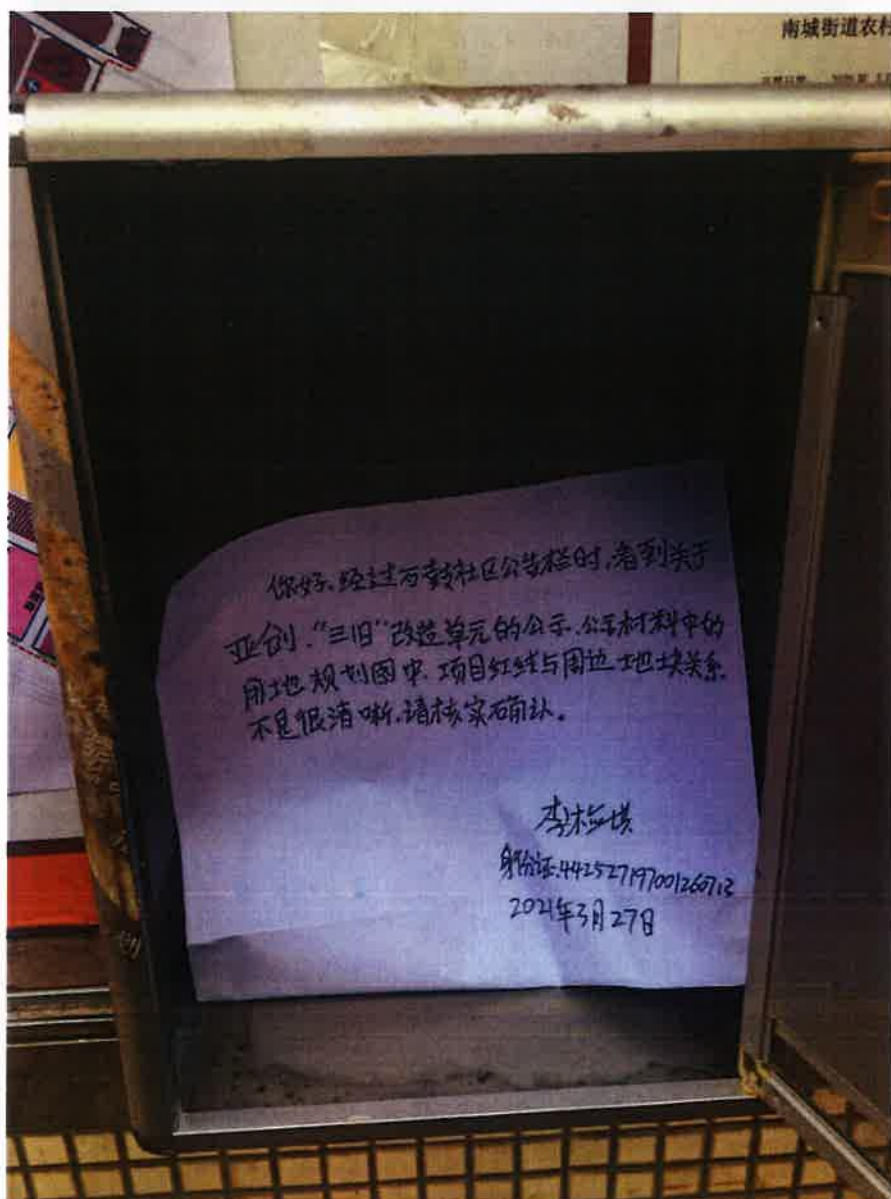 南城街道农村
你好、经过石鼓社区公告栏时,看到关于
亚创."三旧"改造单元的公示.公示材料中的
用地规划图中.项目红线与周边地块关系
不是很清晰.请核实确认。
李
身份证:442527197001260713
2021年3月27日